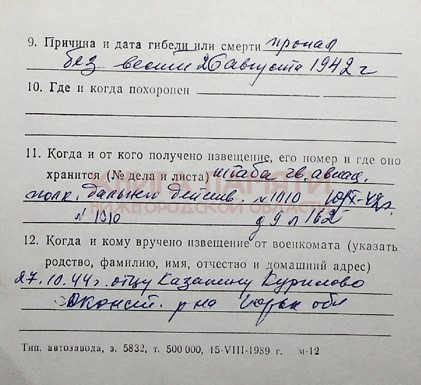 9. Причина и дата гибели или смерти пропал
без вести 26 августа 1942 г
10. Где и когда похоронен
11. Когда и от кого получено извещение, его номер и где оно
хранится (№ дела и листа) штаба гв. авиац.
полк. дальнего действ. №1910
№1910 д 9 л 162
12. Когда и кому вручено извещение от военкомата (указать
родство, фамилию, имя, отчество и домашний адрес)
27.10.44 г. отцу Казанину Курилово
р-на Горьк обл
Тип. автозавода, з. 5832, т. 500 000, 15-VIII-1989 г. м-12
ПАМЯТИ
НИЖЕГОРОДСКОЙ ОБЛАСТИ